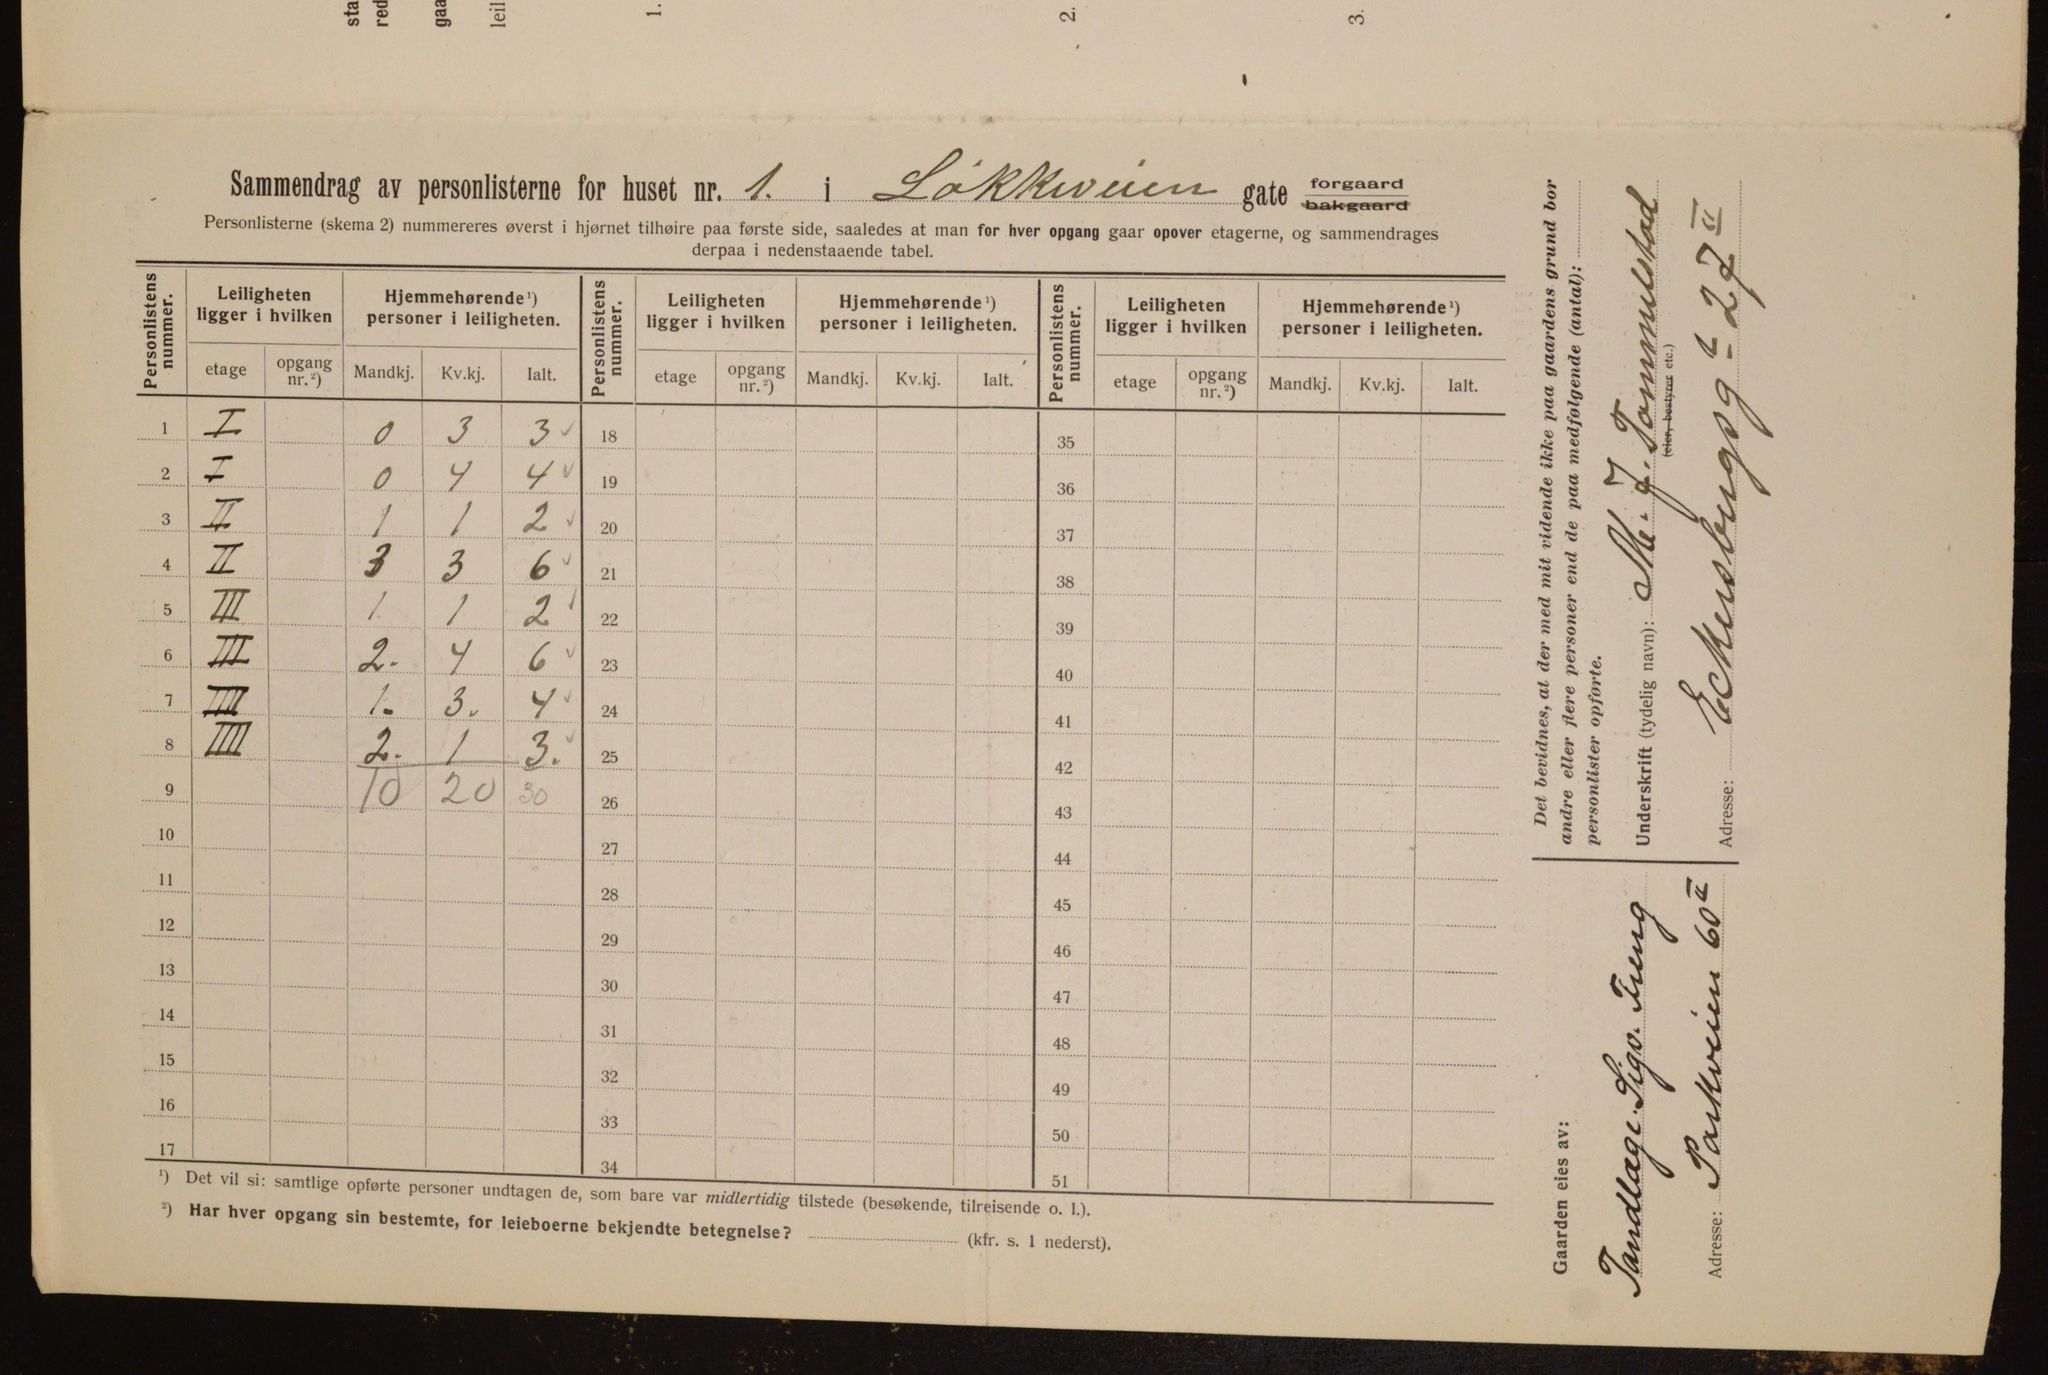 sta
red
gaa
leil
1.
2.
3.
Sammendrag av personlisterne for huset nr. 1. i Løkkeveien gate forgaard bakgaard
Personlisterne (skema 2) nummereres øverst i hjørnet tilhøire paa første side, saaledes at man for hver opgang gaar opover etagerne, og sammendrages
derpaa i nedenstaaende tabel.
Personlistens nummer. Leiligheten ligger i hvilken Hjemmehørende¹) personer i leiligheten. Personlistens nummer. Leiligheten ligger i hvilken Hjemmehørende¹) personer i leiligheten. Personlistens nummer. Leiligheten ligger i hvilken Hjemmehørende¹) personer i leiligheten.
etage opgang nr.²) Mandkj. Kv.kj. Ialt. etage opgang nr.²) Mandkj. Kv.kj. Ialt. etage opgang nr.²) Mandkj. Kv.kj. Ialt.
1 I 0 3 3 ✓ 18 35
2 I 0 4 4 ✓ 19 36
3 II 1 1 2 ✓ 20 37
4 II 3 3 6 ✓ 21 38
5 III 1. 1 2 ✓ 22 39
6 III 2. 4 6 ✓ 23 40
7 IIII 1. 3. 4 ✓ 24 41
8 IIII 2. 1 3. ✓ 25 42
9 10 20 30 26 43
10 27 44
11 28 45
12 29 46
13 30 47
14 31 48
15 32 49
16 33 50
17 34 51
¹) Det vil si: samtlige opførte personer undtagen de, som bare var midlertidig tilstede (besøkende, tilreisende o. l.).
²) Har hver opgang sin bestemte, for leieboerne bekjendte betegnelse? (kfr. s. 1 nederst).
Det bevidnes, at der med mit vidende ikke paa gaardens grund bor
andre eller flere personer end de paa medfølgende (antal):
personlister opførte.
Underskrift (tydelig navn): J. Tommelstad
(eier, bestyrer etc.)
Adresse: Eckersbergsgt 27 II
Gaarden eies av:
Tandlæge Sigv.
Adresse: Parkveien 60 II